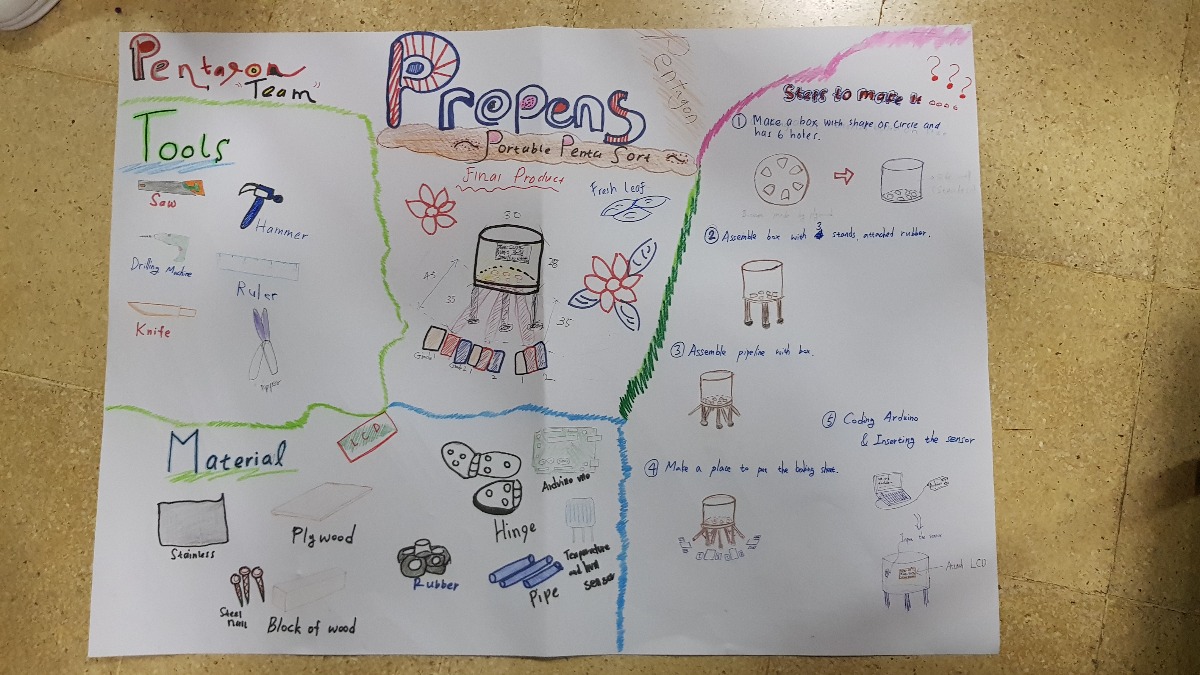 Pentagon
"Team"
Propens
Pentagon
~ Portable Penta Sort ~
Tools
Saw
Hammer
Drilling Machine
Ruler
Knife
Final Product
Fresh leaf
30
28
35
35
Grade 1
2
1
2
Material
LCD
Stainless
Plywood
Steel
nail
Block of wood
Rubber
Hinge
Arduino uno
Pipe
Temperature
and
sensor
???
Steps to make it ....
① Make a box with shape of Circle and
has 6 holes.
② Assemble box with 3 stands, attached rubber.
③ Assemble pipeline with box.
④ Make a place to put the baking sheet.
⑤ Coding Arduino
& Inserting the sensor
Input the sensor
LCD